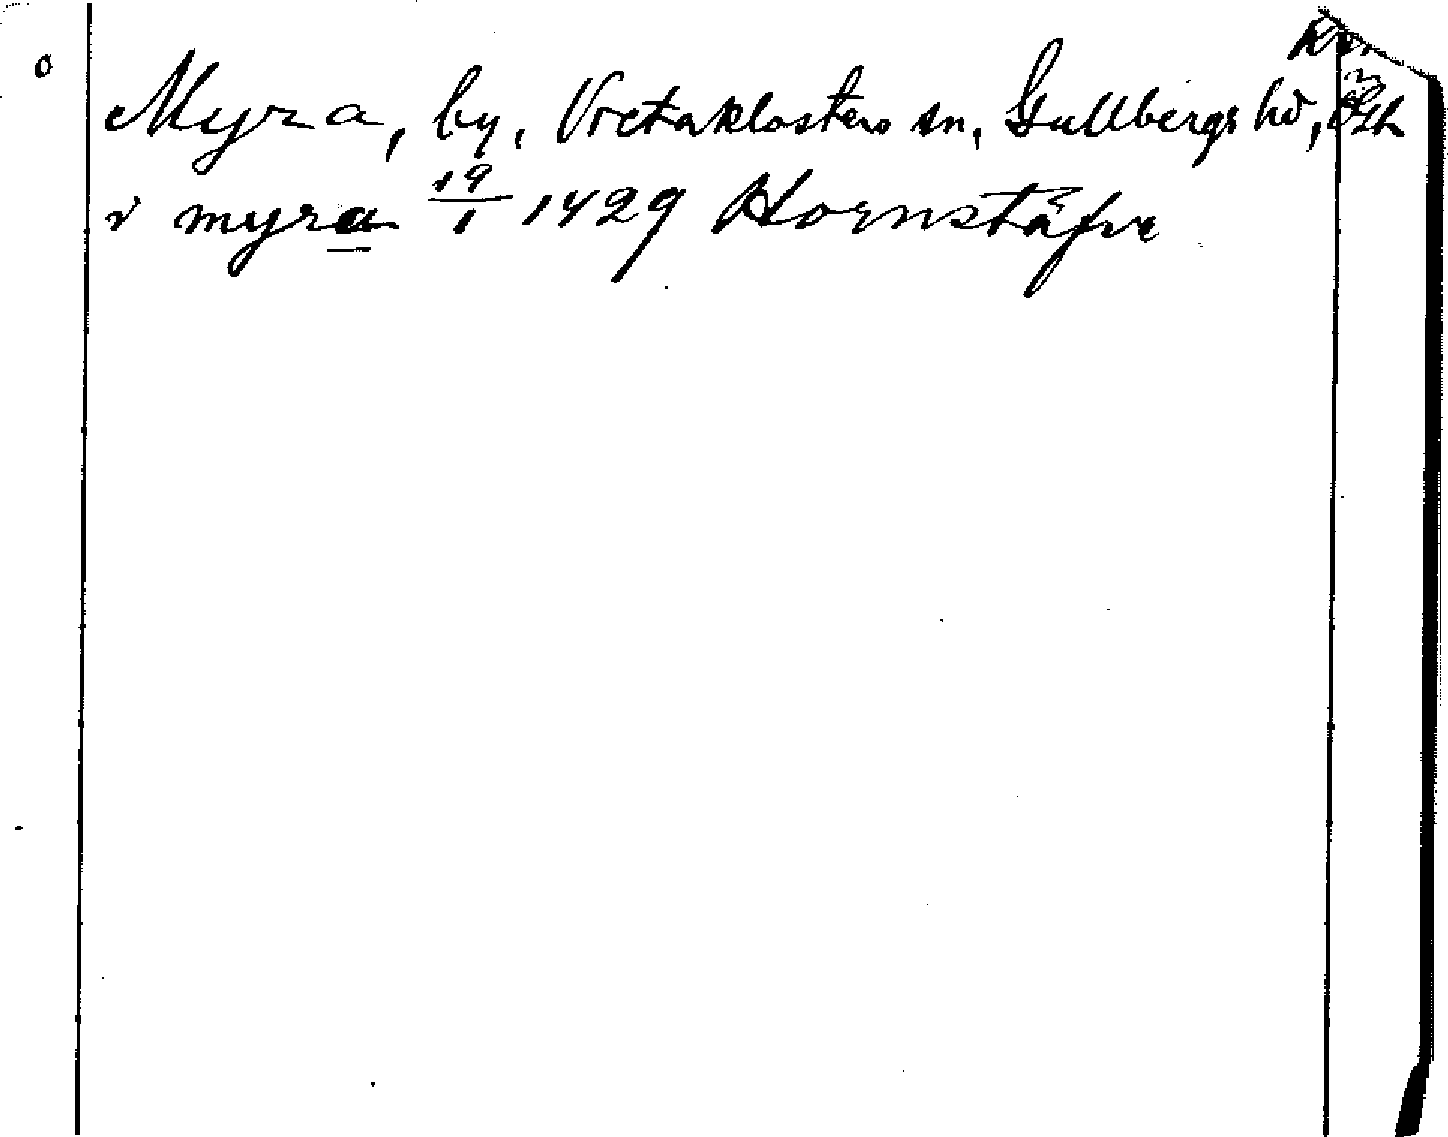 Myra, by, Vretaklosters sn, Gullbergs hd, Ögtl
i myra 19/1 1429 Hornstäfve